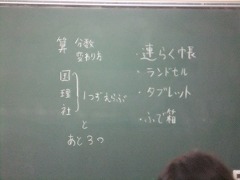 算 分数
変わり方
国
理
社
1つずえらぶ
と
あと3つ
・連らく帳
・ランドセル
・タブレット
・ふで箱